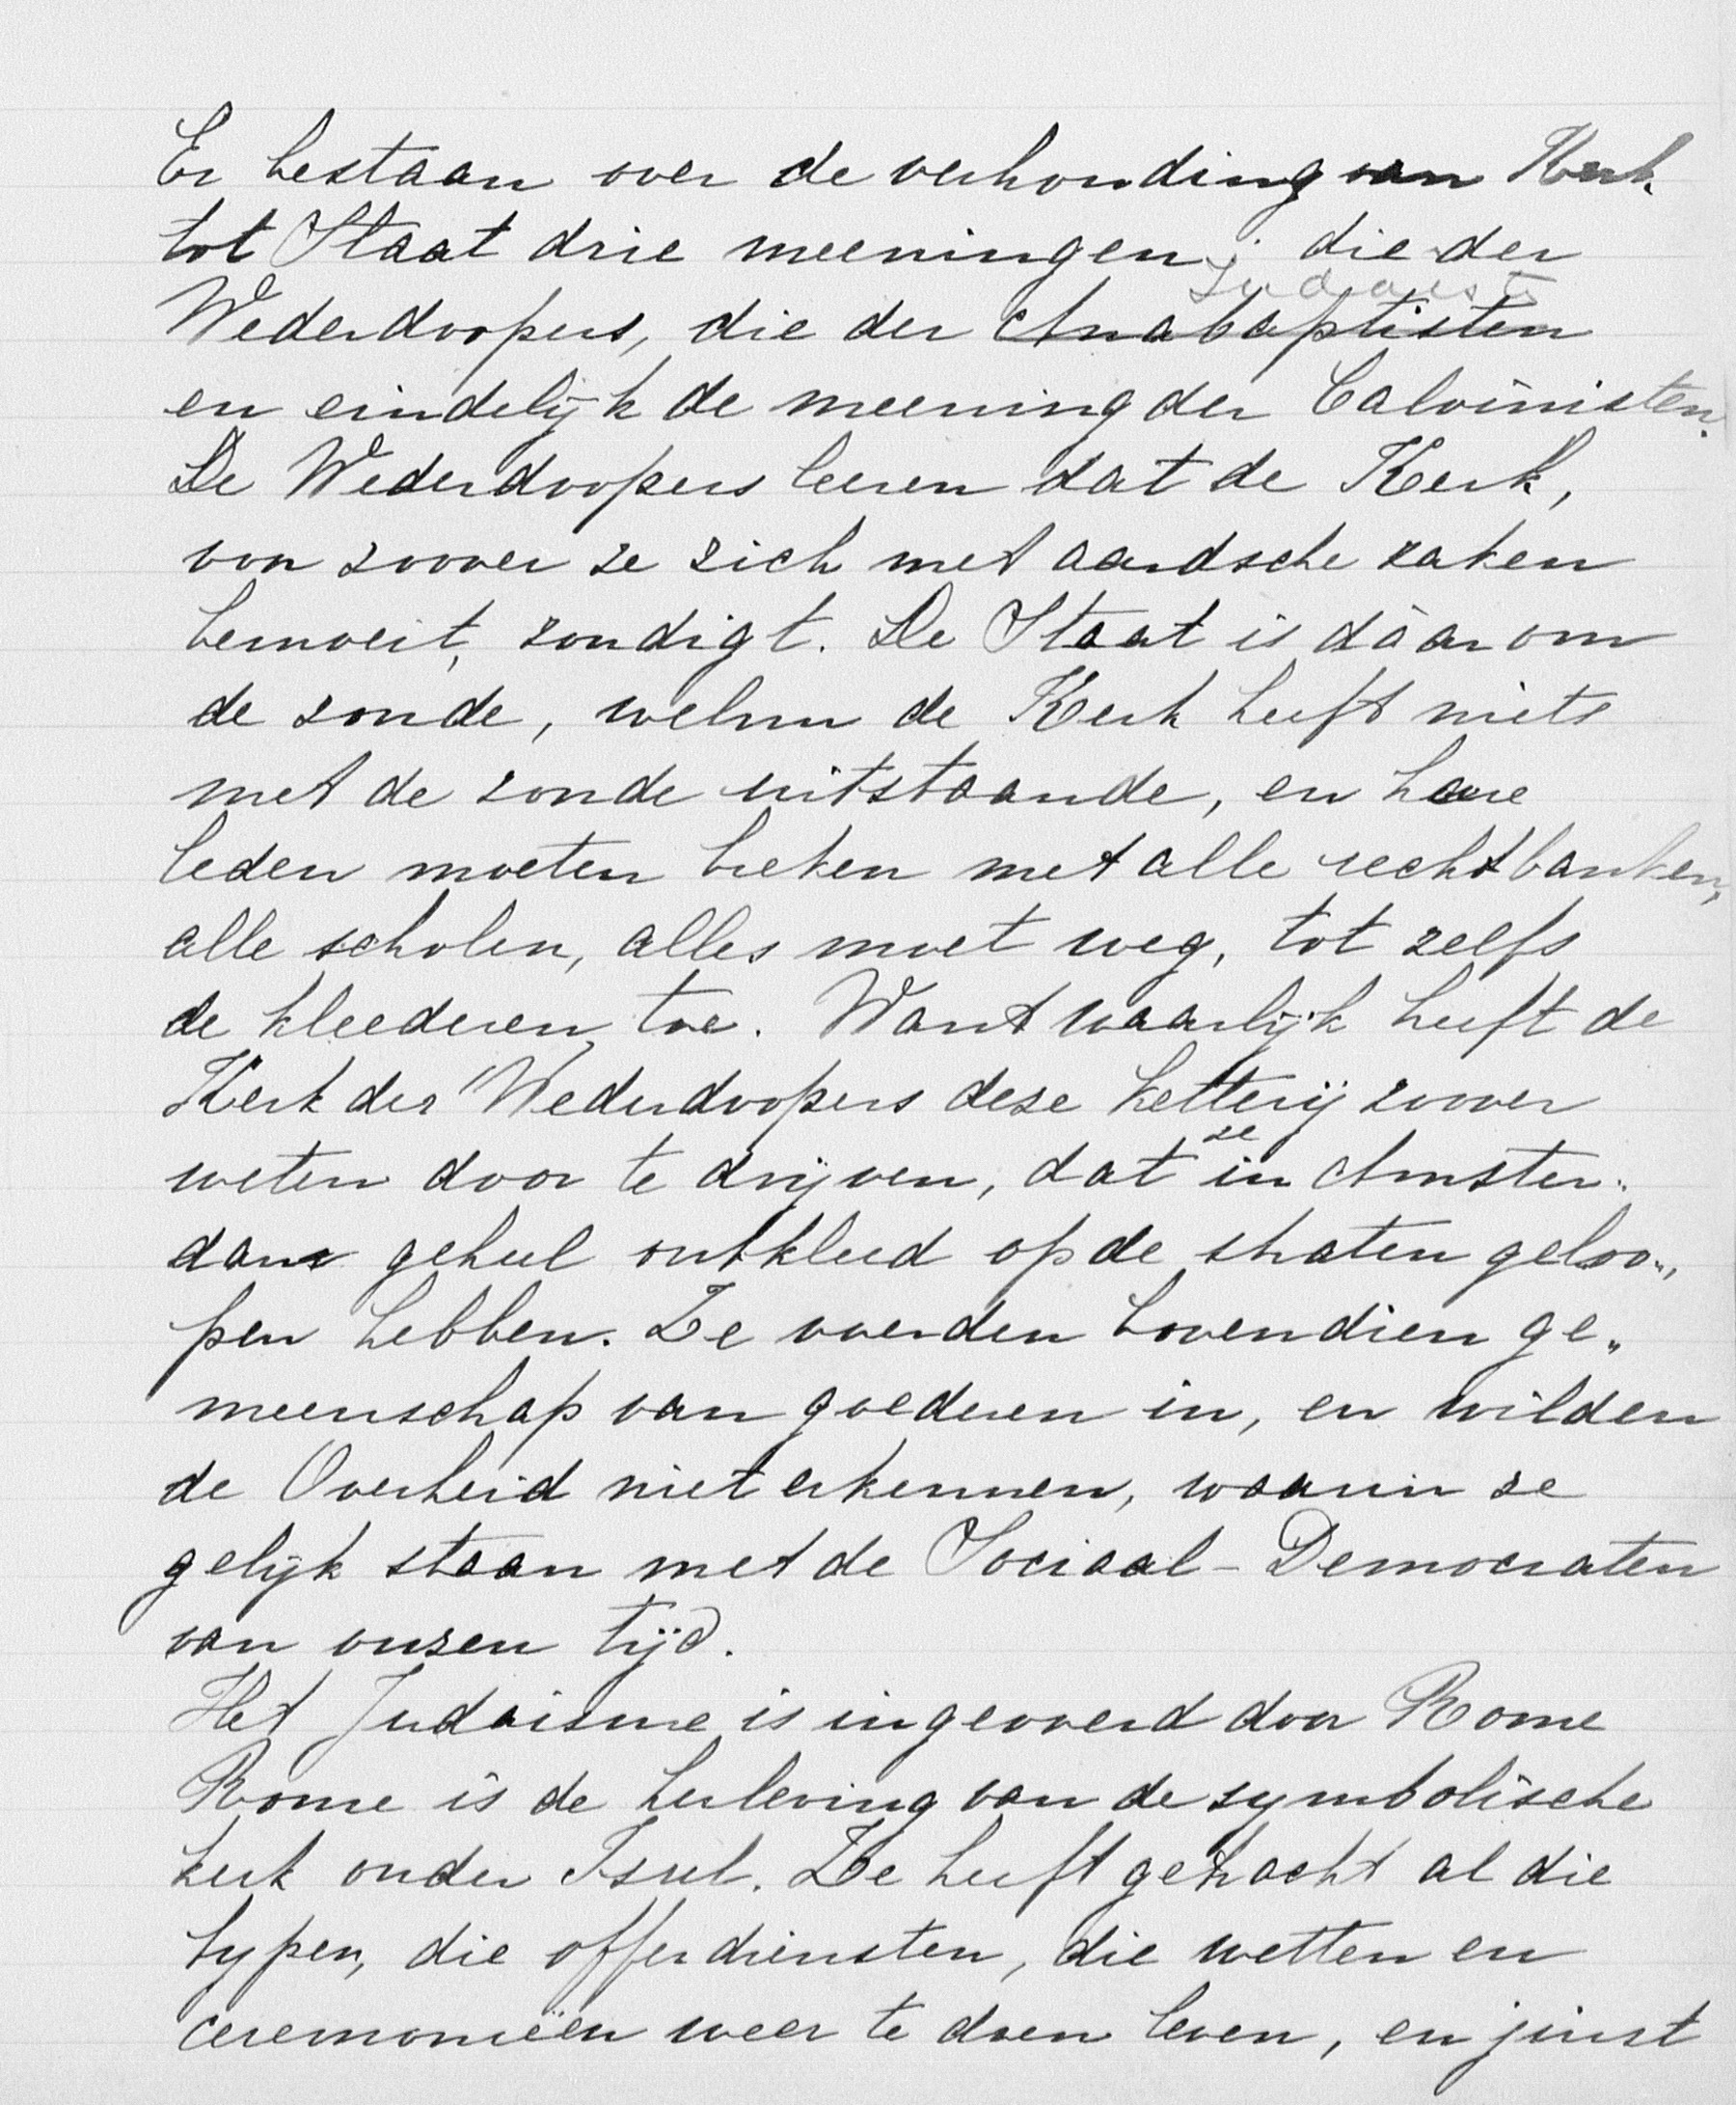 Er bestaan over de verhouding van Kerk
tot Staat drie meeningen; die der
Judaist
Wederdoopers, die der Anabaptisten
en eindelijk de meening der Calvinisten.
De Wederdoopers leeren dat de Kerk,
voor zoover ze zich met aardsche zaken
bemoeit, zondigt. De Staat is dáárom
de zonde, welnu de Kerk heeft niets
met de zonde uitstaande, en hare
leden moeten breken met alle rechtbanken,
alle scholen, alles moet weg, tot zelfs
de kleederen toe. Want waarlijk heeft de
Kerk der Wederdoopers deze ketterij zoover
weten door te drijven, dat ze in Amster„
dam geheel ontkleed op de straten geloo„
pen hebben. Ze voerden bovendien ge„
meenschap van goederen in, en wilden
de Overheid niet erkennen, waarin ze
gelijk staan met de Sociaal-Democraten
van onzen tijd.
Het Judaisme is ingevoerd door Rome
Rome is de herleving van de symbolische
kerk onder Israel. Ze heeft getracht al die
typen, die offerdiensten, die wetten en
ceremoniëen weer te doen leven, en juist